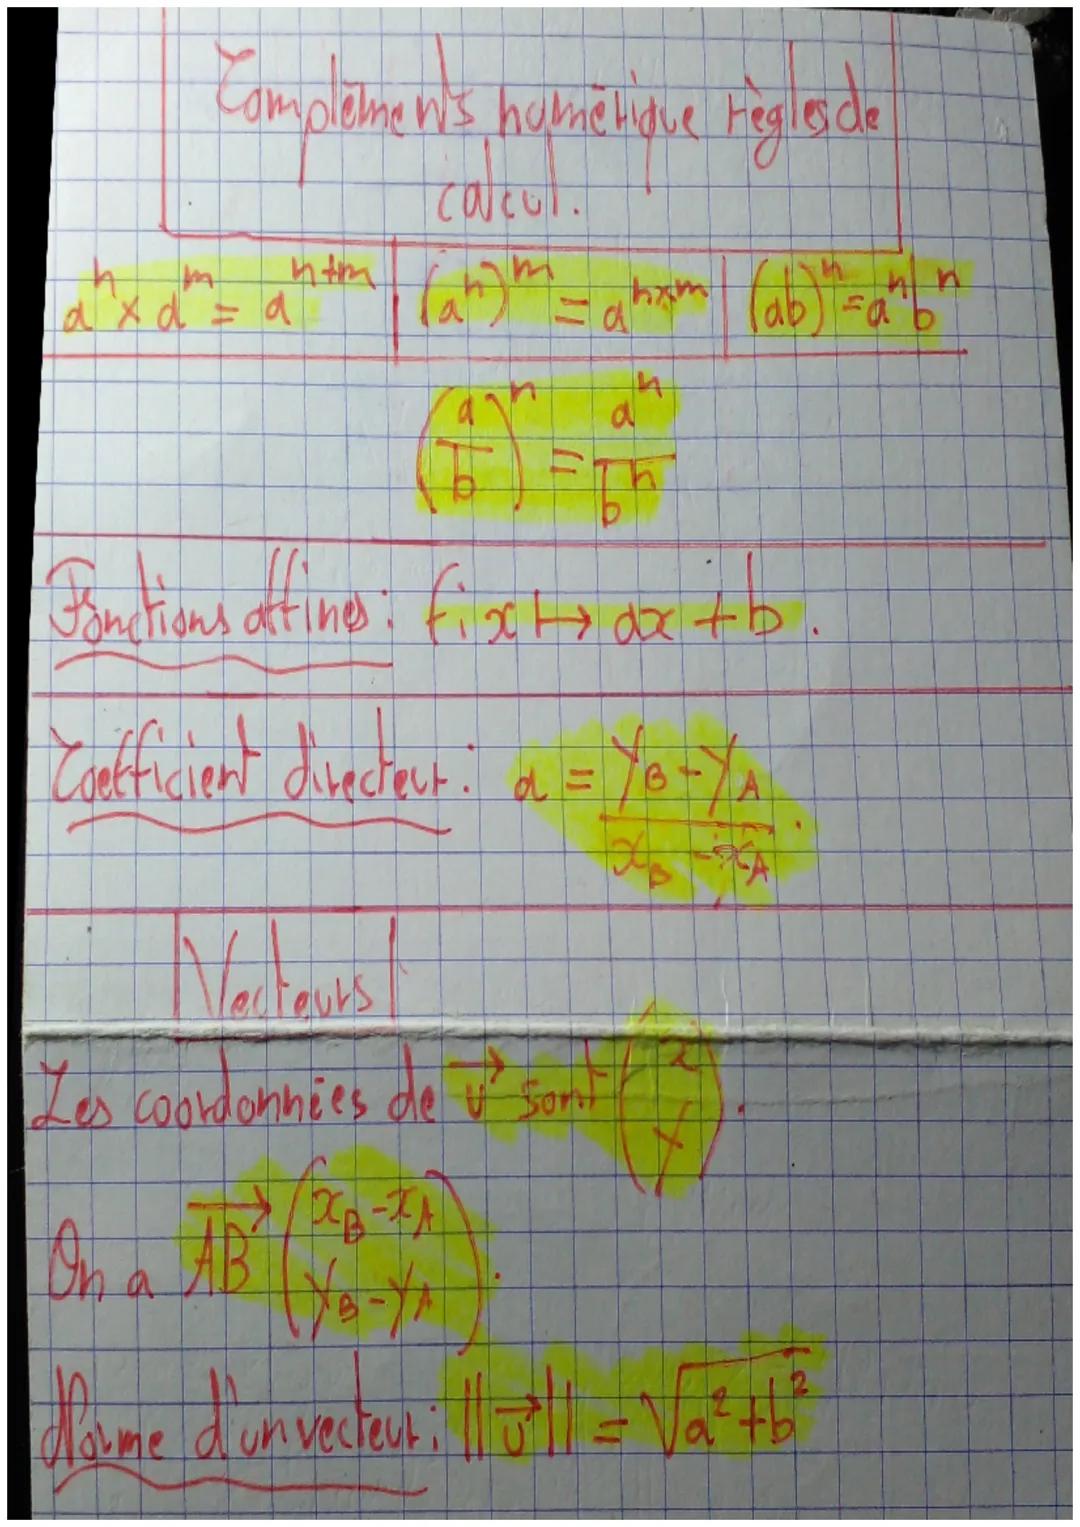 Compléments numérique règles de
calcul.
aⁿ × aᵐ = aⁿ⁺ᵐ | (aⁿ)ᵐ = aⁿˣᵐ | (ab)ⁿ = aⁿbⁿ
(a/b)ⁿ = aⁿ/bⁿ
Fonctions affines : f: x ↦ ax + b.
Coefficient directeur : a = (y_B - y_A)/(x_B - x_A).
Vecteurs
Les coordonnées de v⃗ sont (x y).
On a AB⃗ (x_B - x_A y_B - y_A).
Norme d'un vecteur : ||v⃗|| = √(a² + b²)